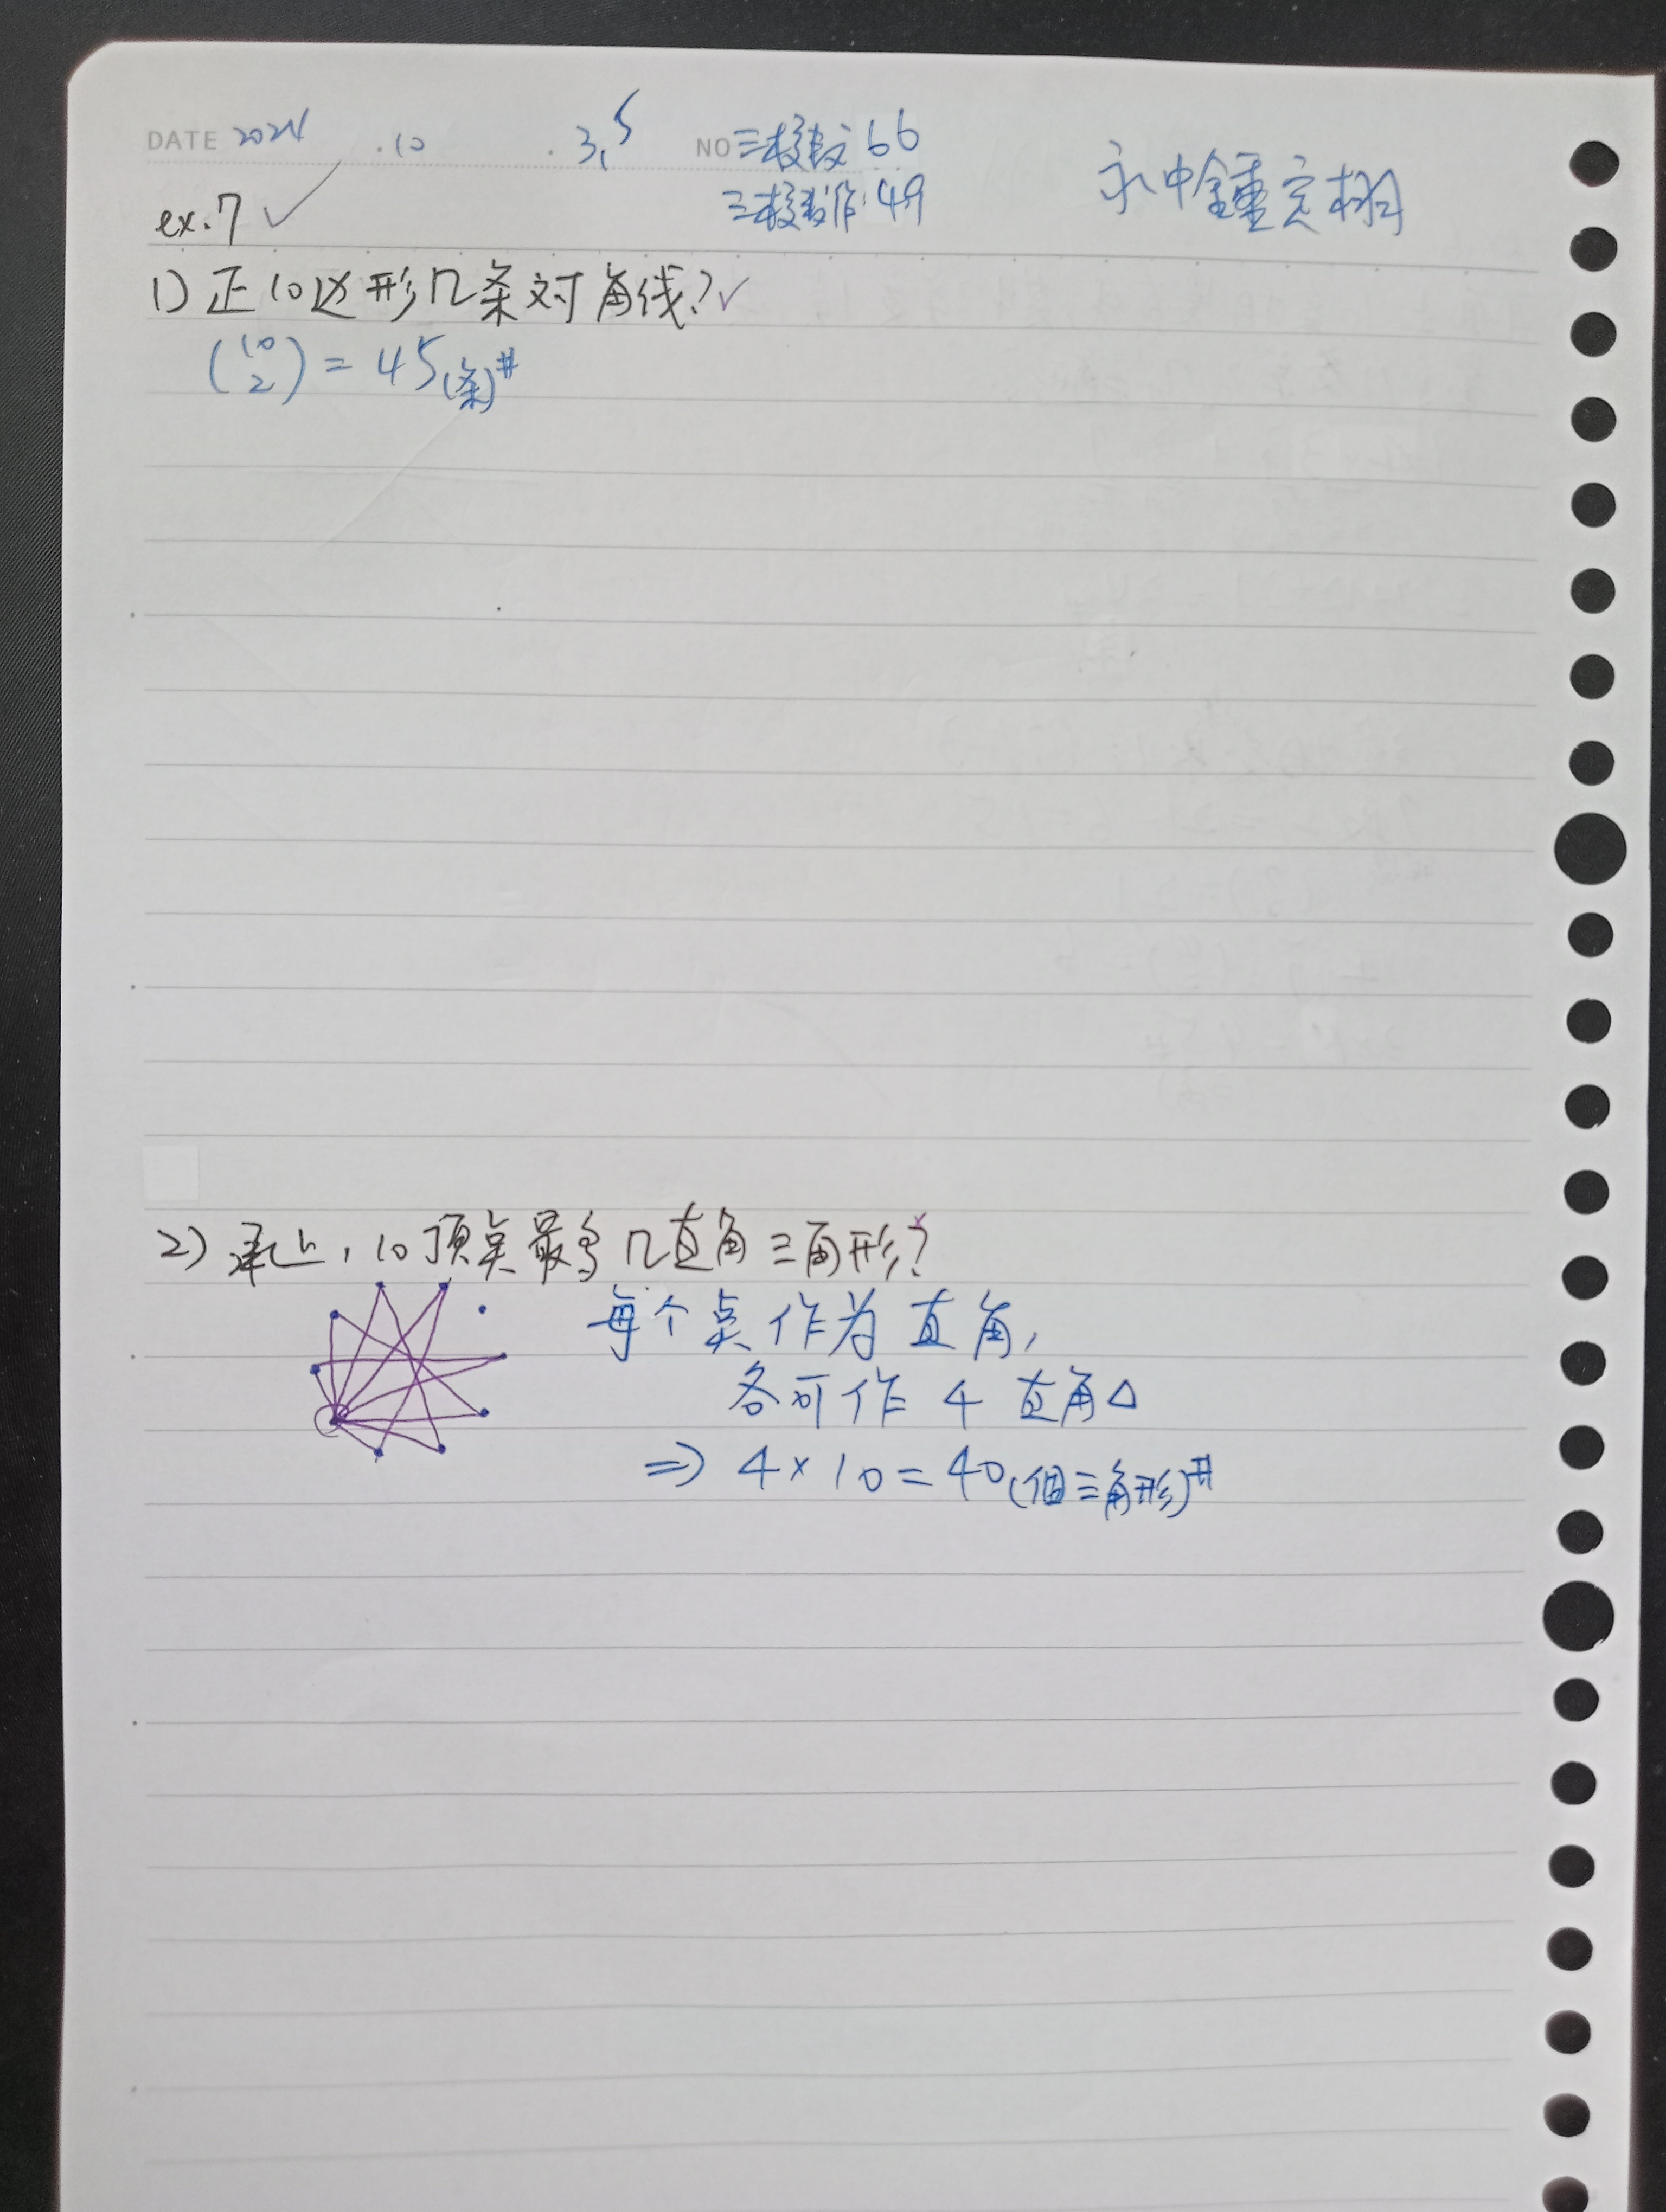 DATE 2024 .10 . 3,5 NO 三模数 66
三模数作 49
永中鍾定栩
ex.7 ✓
1) 正10边形几条对角线?✓
(10 2) = 45(条)#
2) 承上,10顶点最多几直角三角形?
每个点作为直角,
各可作 4 直角△
⇒ 4×10=40(個三角形)#